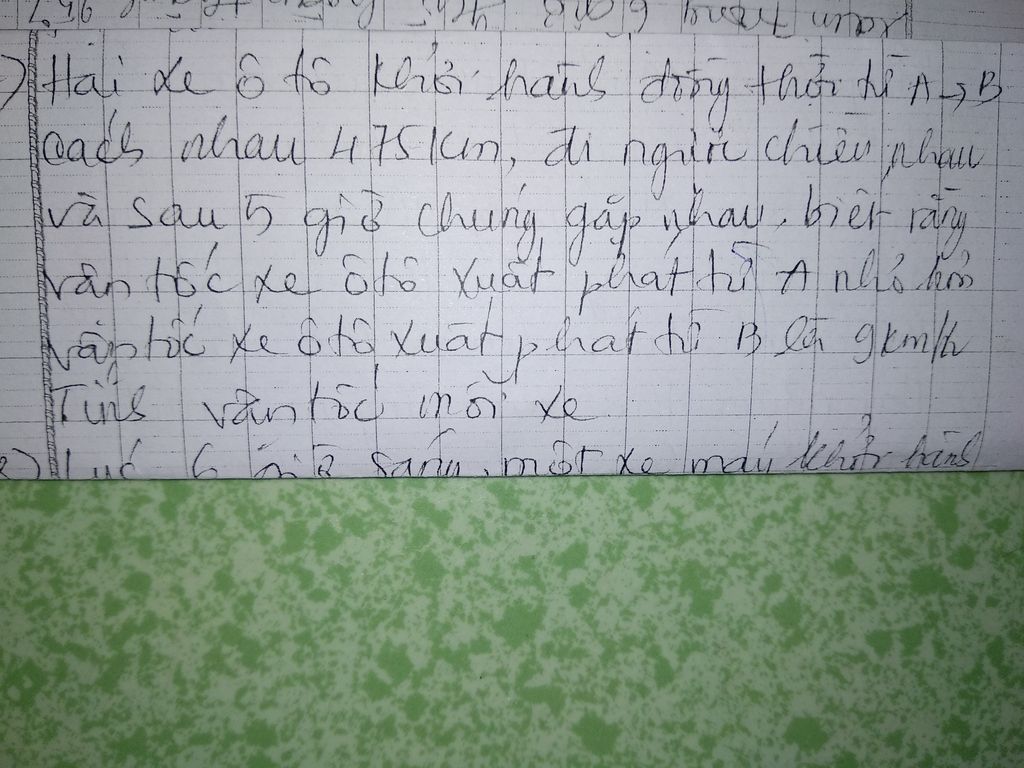 Hai xe ô tô khởi hành đồng thời từ A → B
cách nhau 475km, đi ngược chiều nhau
và sau 5 giờ chúng gặp nhau, biết rằng
vận tốc xe ô tô xuất phát từ A nhỏ hơn
vận tốc xe ô tô xuất phát từ B là 9km/h
Tính vận tốc mỗi xe
Lúc 6 giờ sáng, một xe máy khởi hành